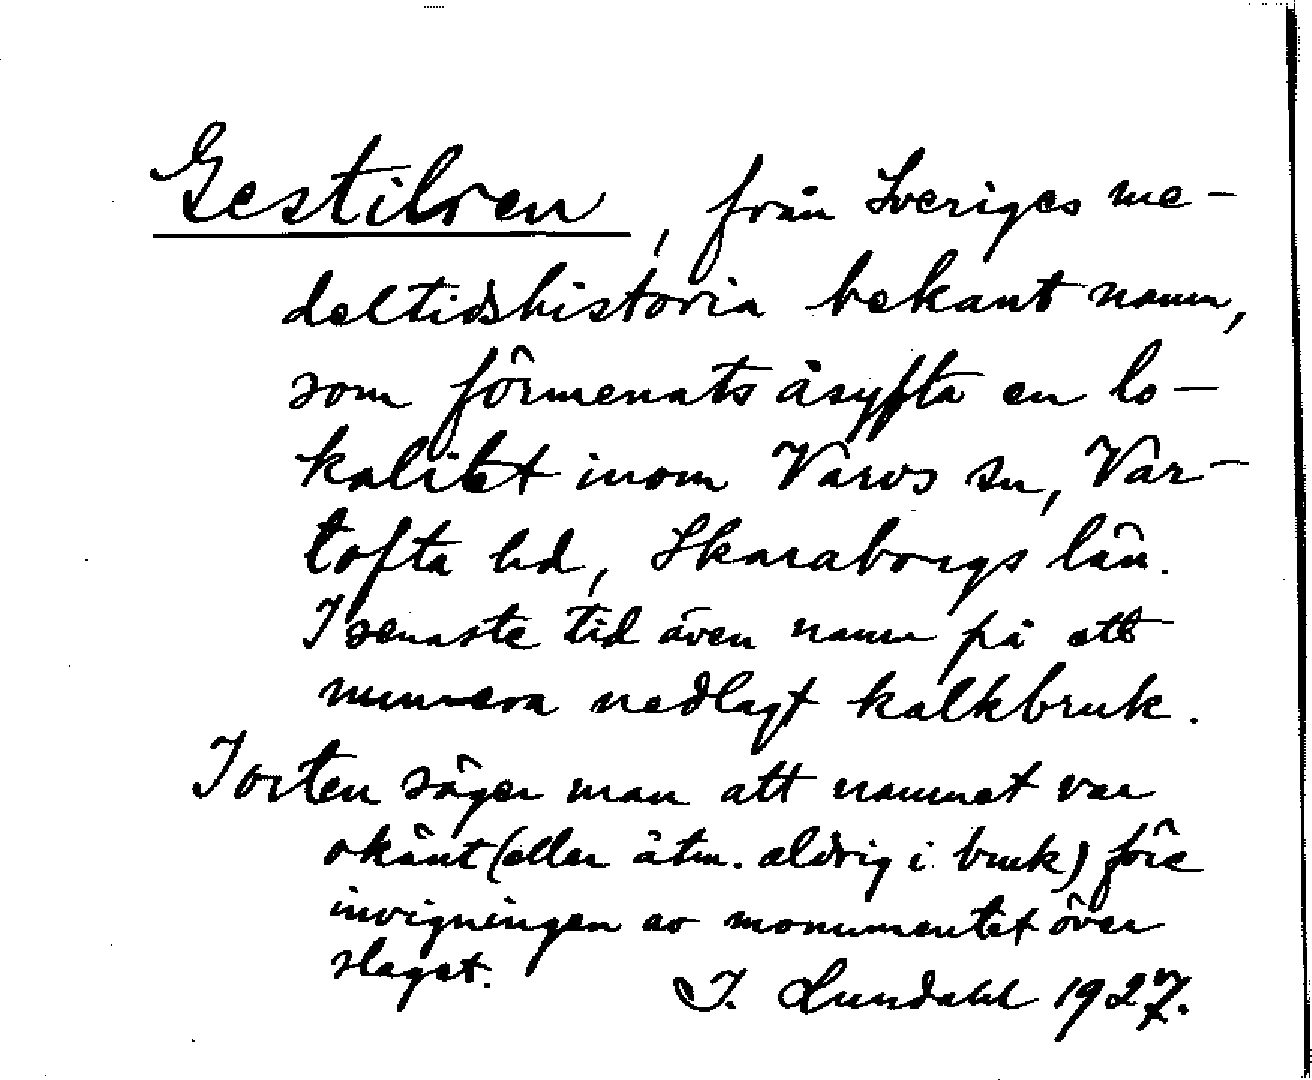 Gestilren, från Sveriges me-
deltidshistoria bekant namn,
som förmenats åsyfta en lo-
kalitet inom Varvs sn, Var-
tofta hd, Skaraborgs län.
I senaste tid även namn på ett
numera nedlagt kalkbruk.
I orten säger man att namnet var
okänt (eller åtm. aldrig i bruk) före
invigningen av monumentet över
slaget.
I. Lundahl 1927.